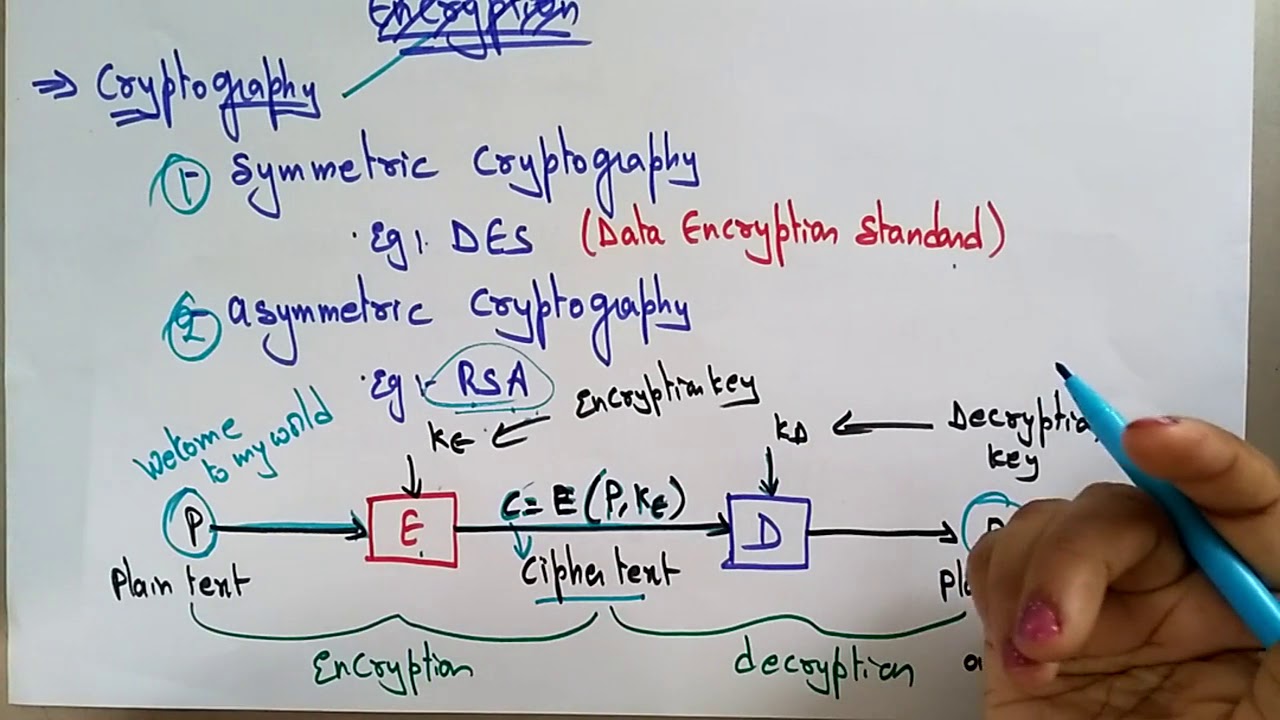 Encryption
⇒ Cryptography
1- Symmetric Cryptography
Eg:- DES (Data Encryption Standard)
2- asymmetric Cryptography
Eg:- RSA
Encryption key
Decryption
key
Welcome
to my world
KE
KD
P
E
C = E(P, KE)
D
Plain text
Cipher text
Encryption
decryption